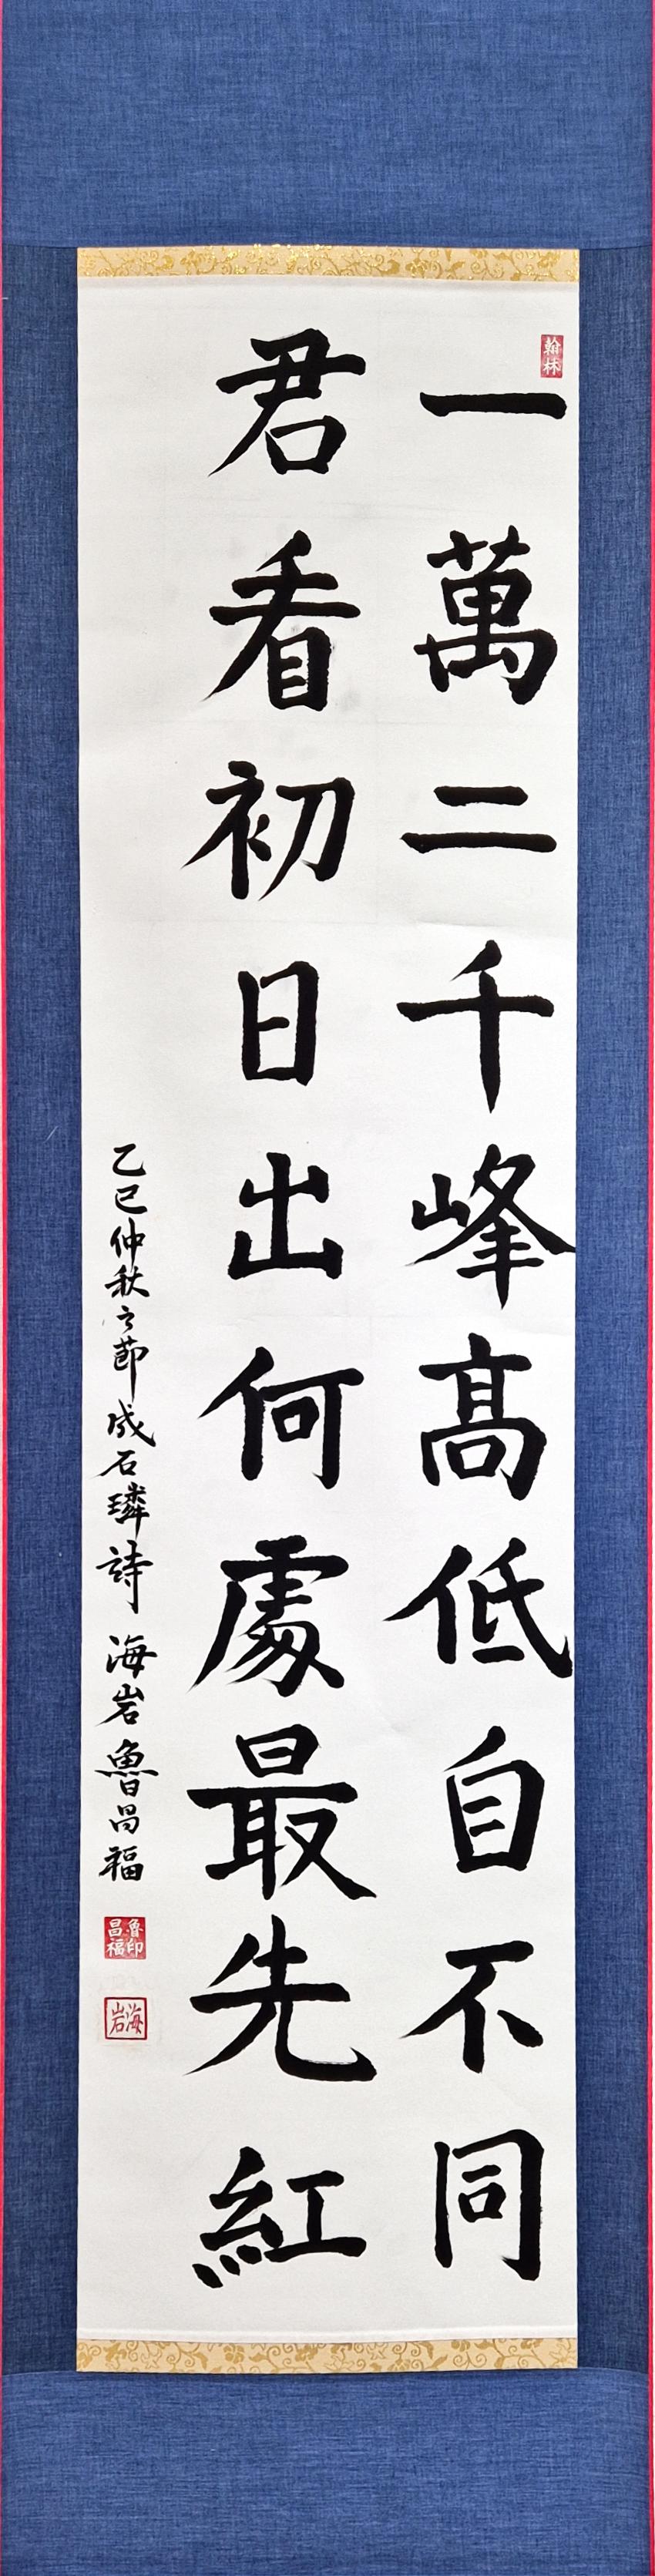 翰林
一萬二千峰高低自不同
君看初日出何處最先紅
乙巳仲秋之節成石璘詩 海岩魯昌福
魯昌福印
海岩